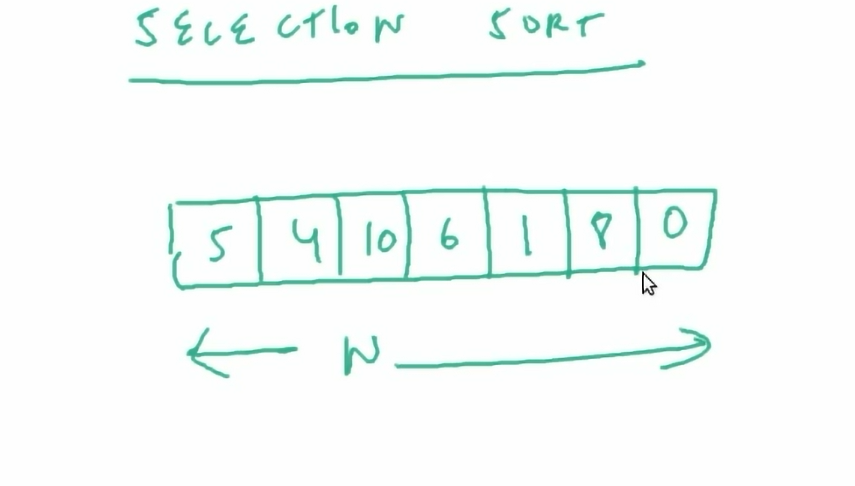 SELECTION SORT
5 4 10 6 1 8 0
N